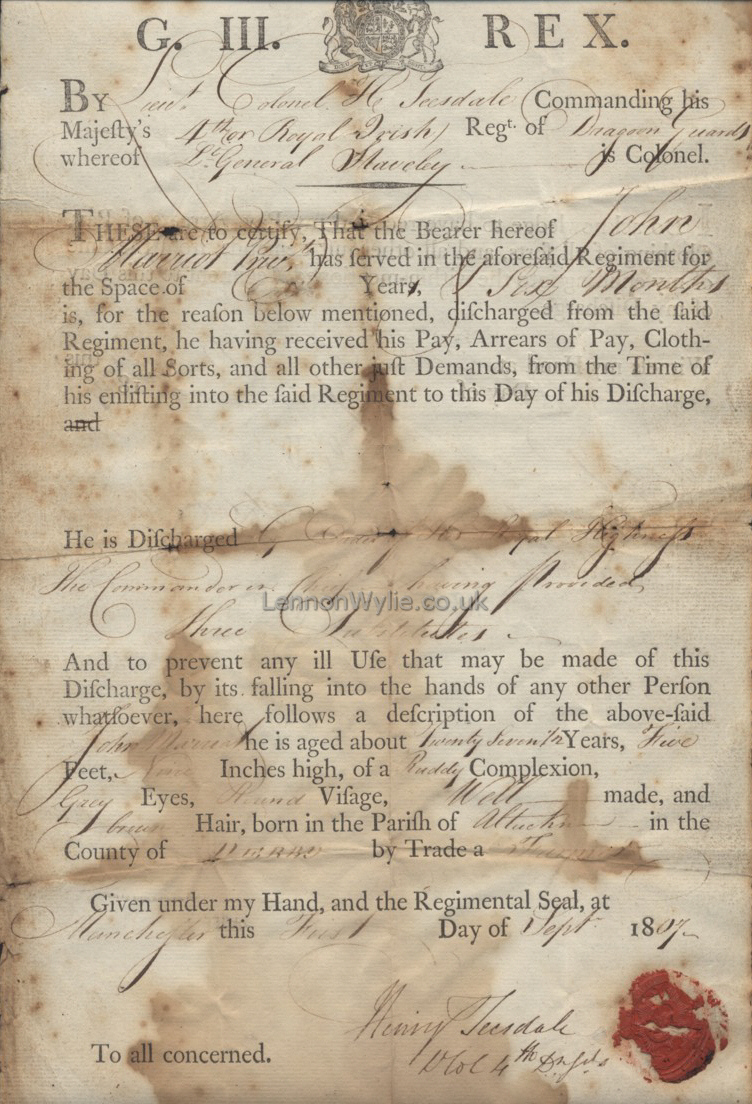 G. III. REX.
By Lieut. Colonel H Teesdale Commanding his
Majeſty's 4th or Royal Irish Regt. of Dragoon Guards
whereof Lt. General Staveley is Colonel.
THESE are to certify, That the Bearer hereof John
has ſerved in the aforeſaid Regiment for
the Space of Years, & Six Months
is, for the reaſon below mentioned, diſcharged from the ſaid
Regiment, he having received his Pay, Arrears of Pay, Cloth-
ing of all Sorts, and all other juſt Demands, from the Time of
his enliſting into the ſaid Regiment to this Day of his Diſcharge,
and
He is Diſcharged by Order of His Royal Highness
The Commander in Chief having Provided
three Substitutes
And to prevent any ill Uſe that may be made of this
Diſcharge, by its falling into the hands of any other Perſon
whatſoever, here follows a deſcription of the above-ſaid
John he is aged about Twenty Seven Years, Five
Feet, Inches high, of a Ruddy Complexion,
Grey Eyes, Round Viſage, Well made, and
Hair, born in the Pariſh of in the
County of by Trade a
Given under my Hand, and the Regimental Seal, at
Manchester this First Day of Sept 1807
Henry Teesdale
Lt Col 4th Dn Gds
To all concerned.
LennonWylie.co.uk